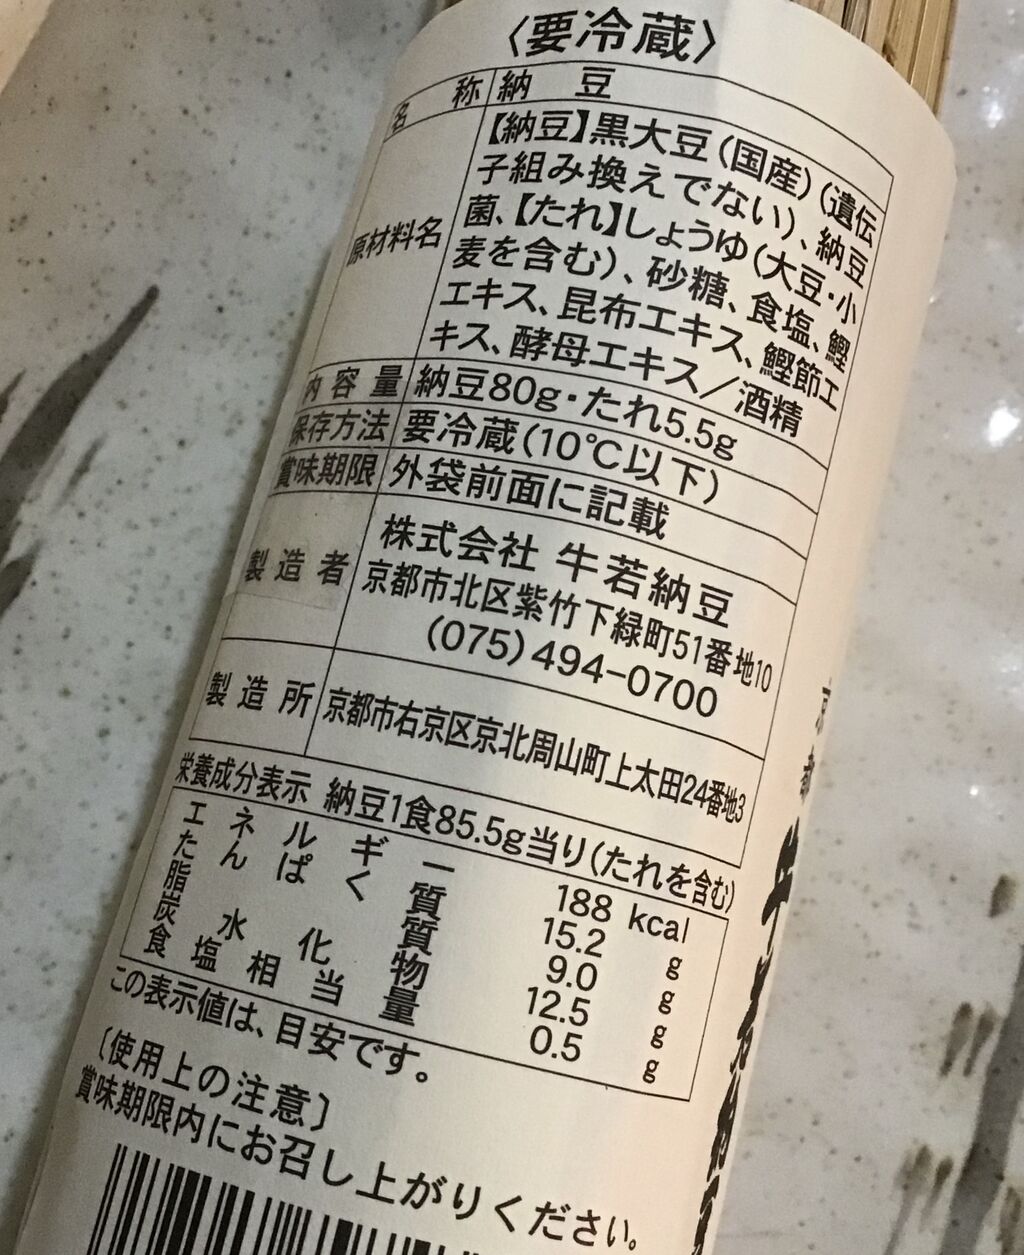 〈要冷蔵〉
名称 納豆
原材料名 【納豆】黒大豆(国産)(遺伝
子組み換えでない)、納豆
菌、【たれ】しょうゆ(大豆・小
麦を含む)、砂糖、食塩、鰹
エキス、昆布エキス、鰹節エ
キス、酵母エキス/酒精
内容量 納豆80g・たれ5.5g
保存方法 要冷蔵(10℃以下)
賞味期限 外袋前面に記載
製造者 株式会社 牛若納豆
京都市北区紫竹下緑町51番地10
(075)494-0700
製造所 京都市右京区京北周山町上太田24番地3
栄養成分表示 納豆1食85.5g当り(たれを含む)
エネルギー 188 kcal
たんぱく質 15.2 g
脂質 9.0 g
炭水化物 12.5 g
食塩相当量 0.5 g
この表示値は、目安です。
〔使用上の注意〕
賞味期限内にお召し上がりください。
京都